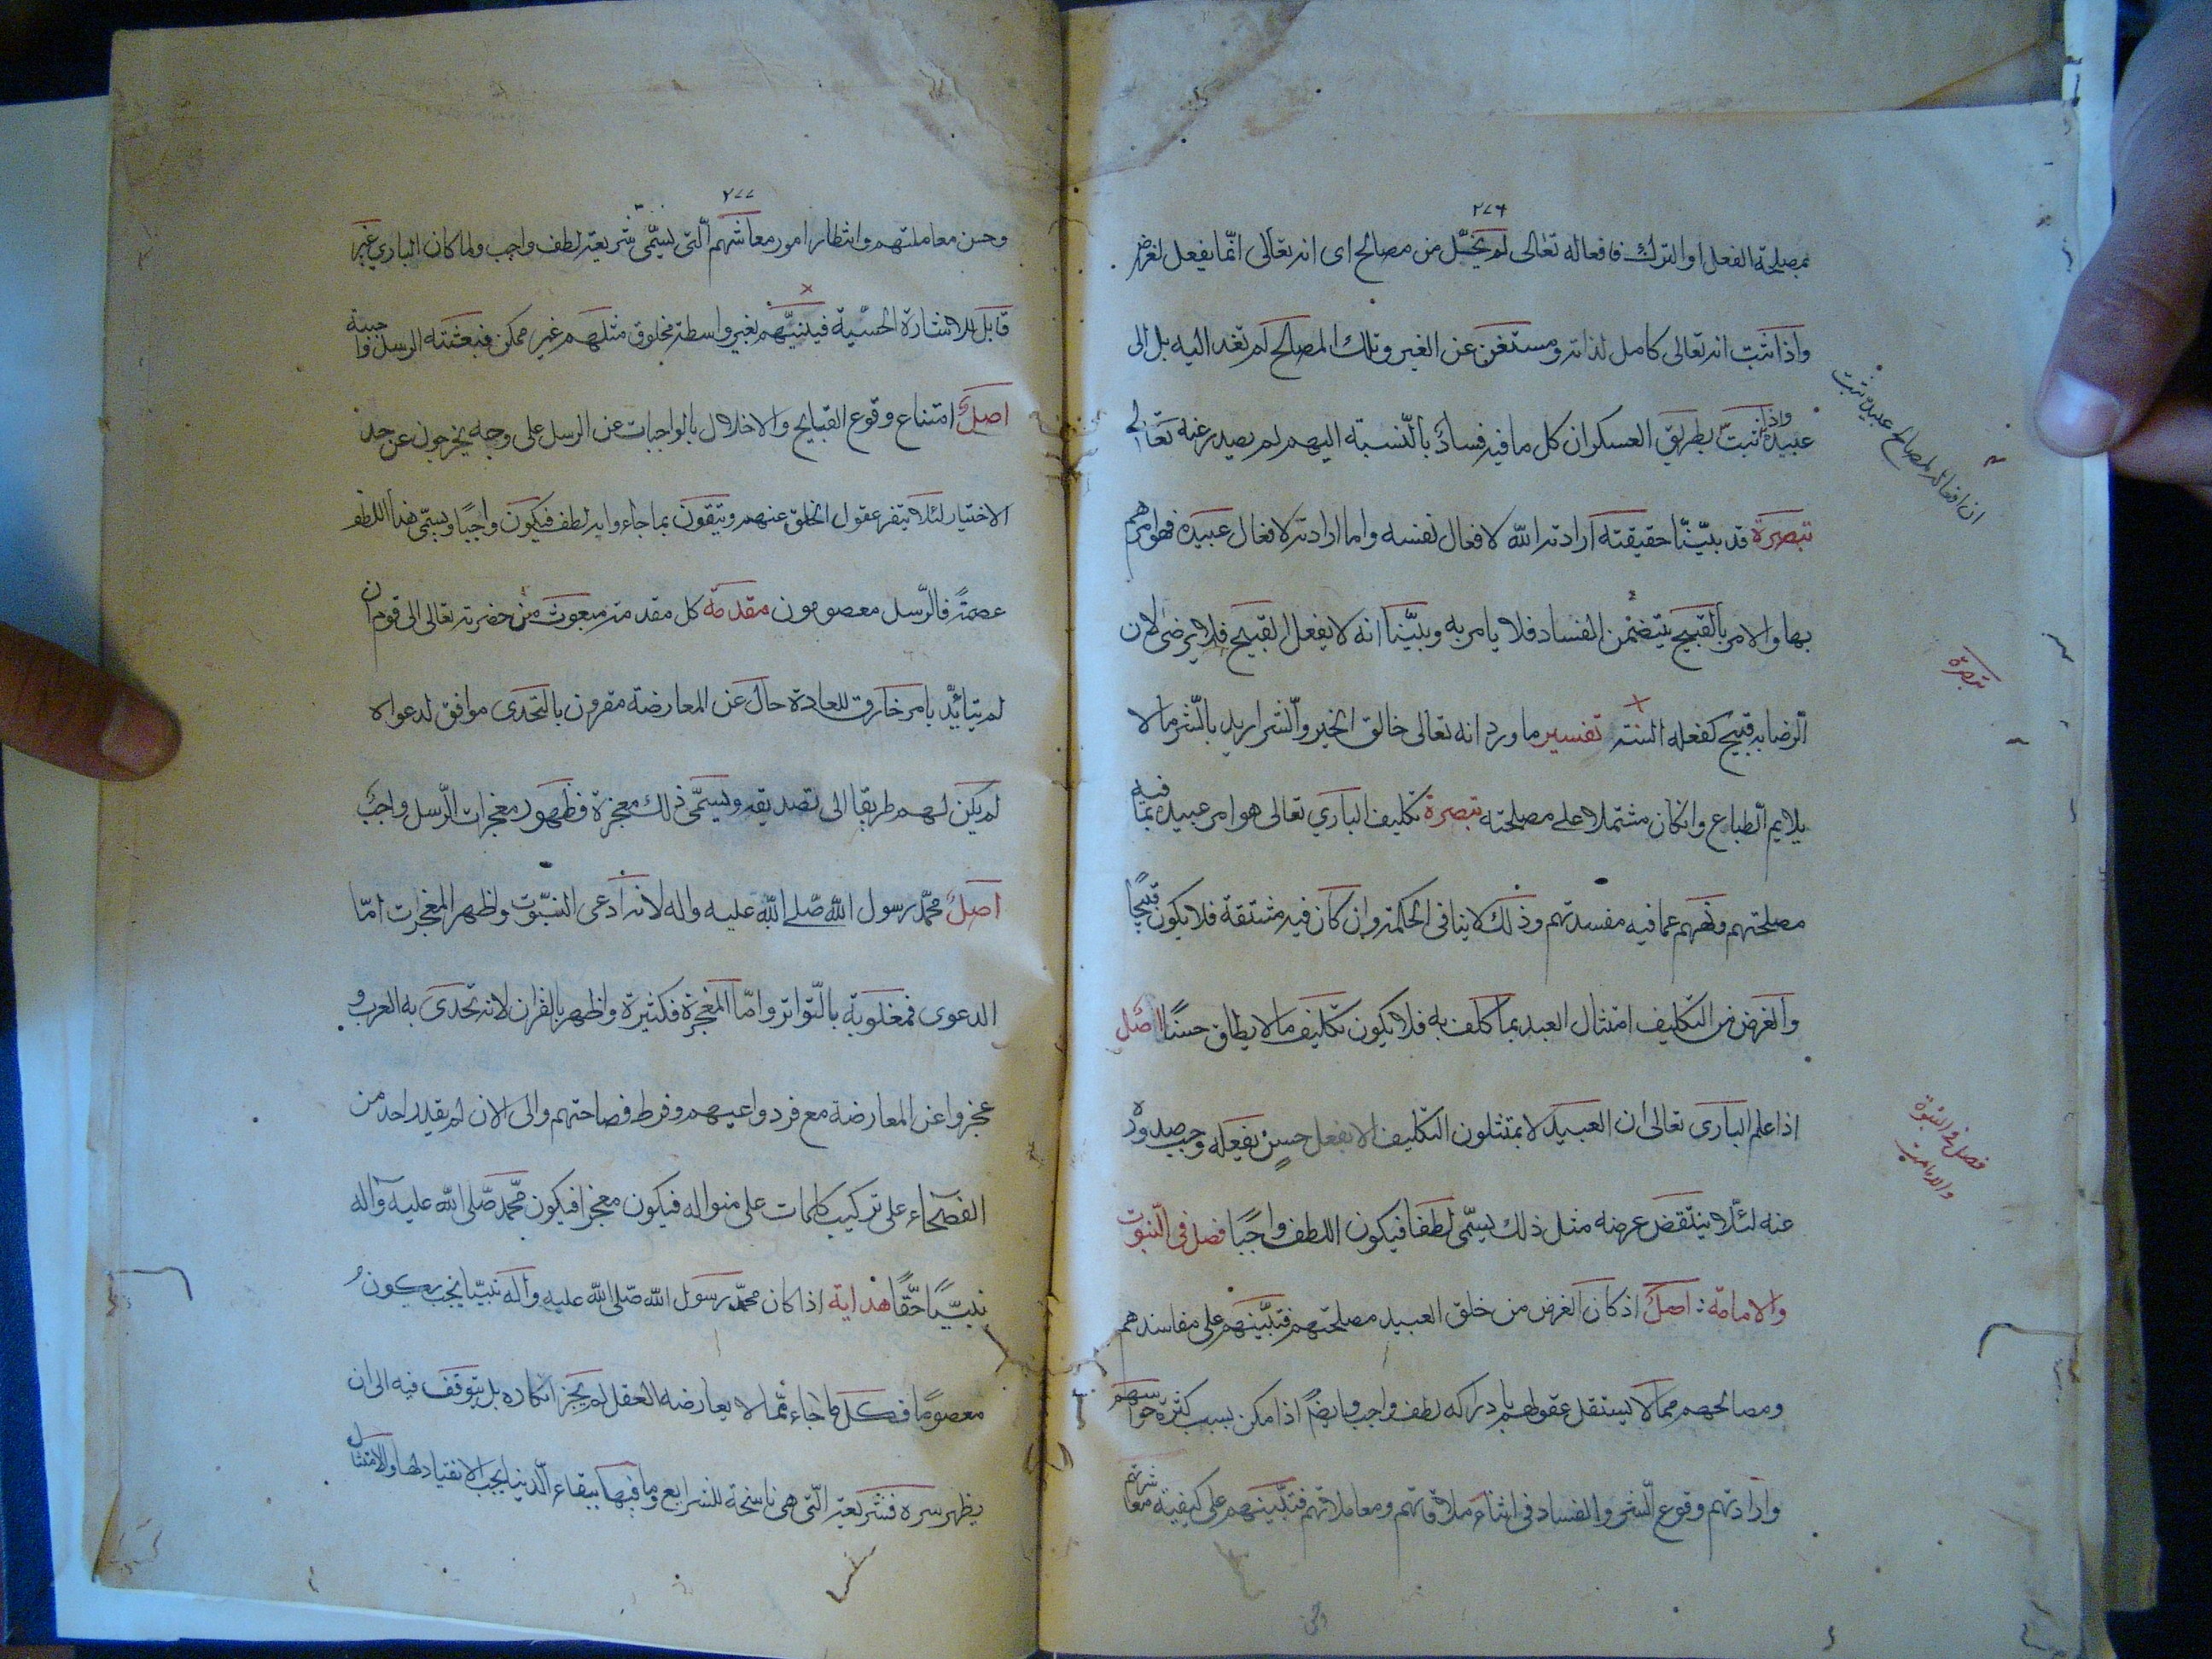 ٢٧٦
بمصلحة الفعل او الترك فافعاله تعالى لم يخل من مصالح اى انه تعالى انما يفعل لغرض
واذا ثبت انه تعالى كامل لذاته ومستغن عن الغير وتلك المصالح لم تعد اليه بل الى
عبيده واذا ثبت بطريق العسكر ان كل ما فيه فساد بالنسبته اليهم لم يصدر عنه تعالى
ان افعاله لمصالح عبيده ثبت
تبصرة قد بيّنّا حقيقته ارادته الله لافعال نفسه واما ارادته لافعال عبيده فهو امرهم
بها والامر بالقبيح يتضمن الفساد فلا يامر به وبيّنا انه لا يفعل القبيح فلا يرضى لان
تبصرة
الرضا به قبيح كفعله البتته تفسير ما ورد انه تعالى خالق الخير والشر اريد بالشر ما لا
يلايم الطباع وانكان مشتملا على مصلحته تبصرة تكليف الباري تعالى هو امر عبيده بما فيه
مصلحتهم ونهيهم عما فيه مفسدتهم وذلك لا ينافى الحكمته وان كان فيه مشتقة فلا يكون قبيحًا
والغرض من التكليف امتثال العبد بما كلف به فلا يكون تكليف ما لا يطاق حسنًا اصل
اذا علم البارى تعالى ان العبيد لا يمتثلون التكليف الا بفعل حسن يفعله وجب صدوره
فصل فى النبوة
والامامت
عنه لئلا ينتقض غرضه مثل ذلك يسمّى لطفا فيكون اللطف واجبًا فصل فى النبوت
والامامة: اصل اذ كان الغرض من خلق العبيد مصلحتهم فتبيّنهم على مفاسدهم
ومصالحهم مما لا يستقل عقولهم بادراكه لطف واجب وايضًا اذا مكن بسبب كثرة حواسهم
وارادتهم وقوع الشر والفساد فى اثناء ملاقاتهم ومعاملاتهم فتبيّنهم على كيفية معاشرتهم
٢٧٧
وحسن معاملتهم وانتظار امور معاشهم التى يسمّى شريعته لطف واجب ولما كان البارى غير
قابل للاشارة الحسّية فبينهم بغير واسطته مخلوق مثلهم غير ممكن فبعثته الرسل واجبة
اصل امتناع وقوع القبايح والاخلال بالواجبات عن الرسل على وجه يخرجون عن حد
الاختيار لئلا يتنفر عقول الخلق عنهم ويثقون بما جاءوا به لطف فيكون واجبًا ويسمّى هذا اللطف
عصمةً فالرّسل معصومون مقدمة كل مقدمته مبعوث من حضرته تعالى الى قوم ان
لم يتايّد بامر خارق للعادة خال عن المعارضة مقرون بالتحدى موافق لدعواه
لم يكن لهم طريقا الى تصديقه ويسمّى ذلك معجزة فظهور معجزات الرّسل واجبٌ
اصلٌ محمّد رسول الله صلى الله عليه واله لانه ادعى النبّوت واظهر المعجزات امّا
الدعوى فمعلومة بالتّواتر وامّا المعجزة فكثيرة واظهر بالقران لانه تحدى به العرب و
عجزوا عن المعارضة مع فرد واعيهم وفرط فصاحتهم والى الان لم يقدر احد من
الفصحاء على تركيب كلمات على منواله فيكون معجزا فيكون محمّد صلّى الله عليه وآله
نبيًّا حقًّا هداية اذا كان محمّد رسول الله صلّى الله عليه وآله نبيّا يجب يكون
معصومًا فكل ما جاء ممّا لا يعارضه العقل لم يجز انكاره بل يتوقف فيه الى ان
يظهر سره فشريعته التى هى ناسخة للشرايع وما فيها ببقاء الدنيا يجب الانقياد لها والامتثال